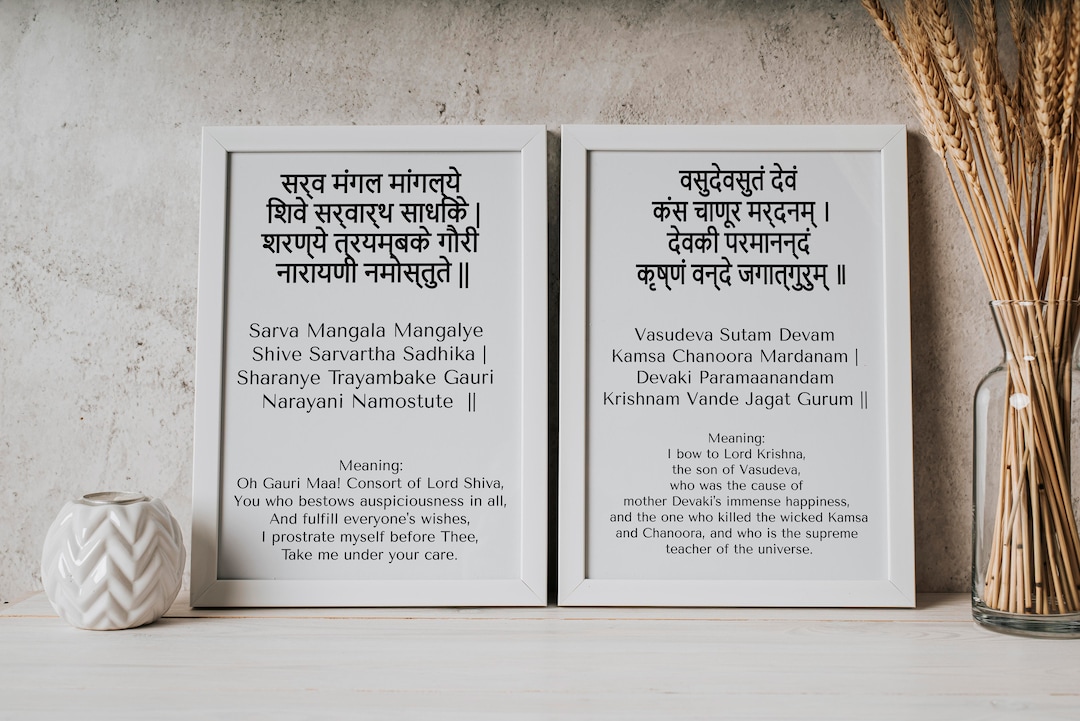 सर्व मंगल मांगल्ये
शिवे सर्वार्थ साधिके |
शरण्ये त्रयम्बके गौरी
नारायणी नमोस्तुते ||
Sarva Mangala Mangalye
Shive Sarvartha Sadhika |
Sharanye Trayambake Gauri
Narayani Namostute ||
Meaning:
Oh Gauri Maa! Consort of Lord Shiva,
You who bestows auspiciousness in all,
And fulfill everyone's wishes,
I prostrate myself before Thee,
Take me under your care.
वसुदेवसुतं देवं
कंस चाणूर मर्दनम् ।
देवकी परमानन्दं
कृष्णं वन्दे जगात्गुरुम् ॥
Vasudeva Sutam Devam
Kamsa Chanoora Mardanam |
Devaki Paramaanandam
Krishnam Vande Jagat Gurum ||
Meaning:
I bow to Lord Krishna,
the son of Vasudeva,
who was the cause of
mother Devaki's immense happiness,
and the one who killed the wicked Kamsa
and Chanoora, and who is the supreme
teacher of the universe.